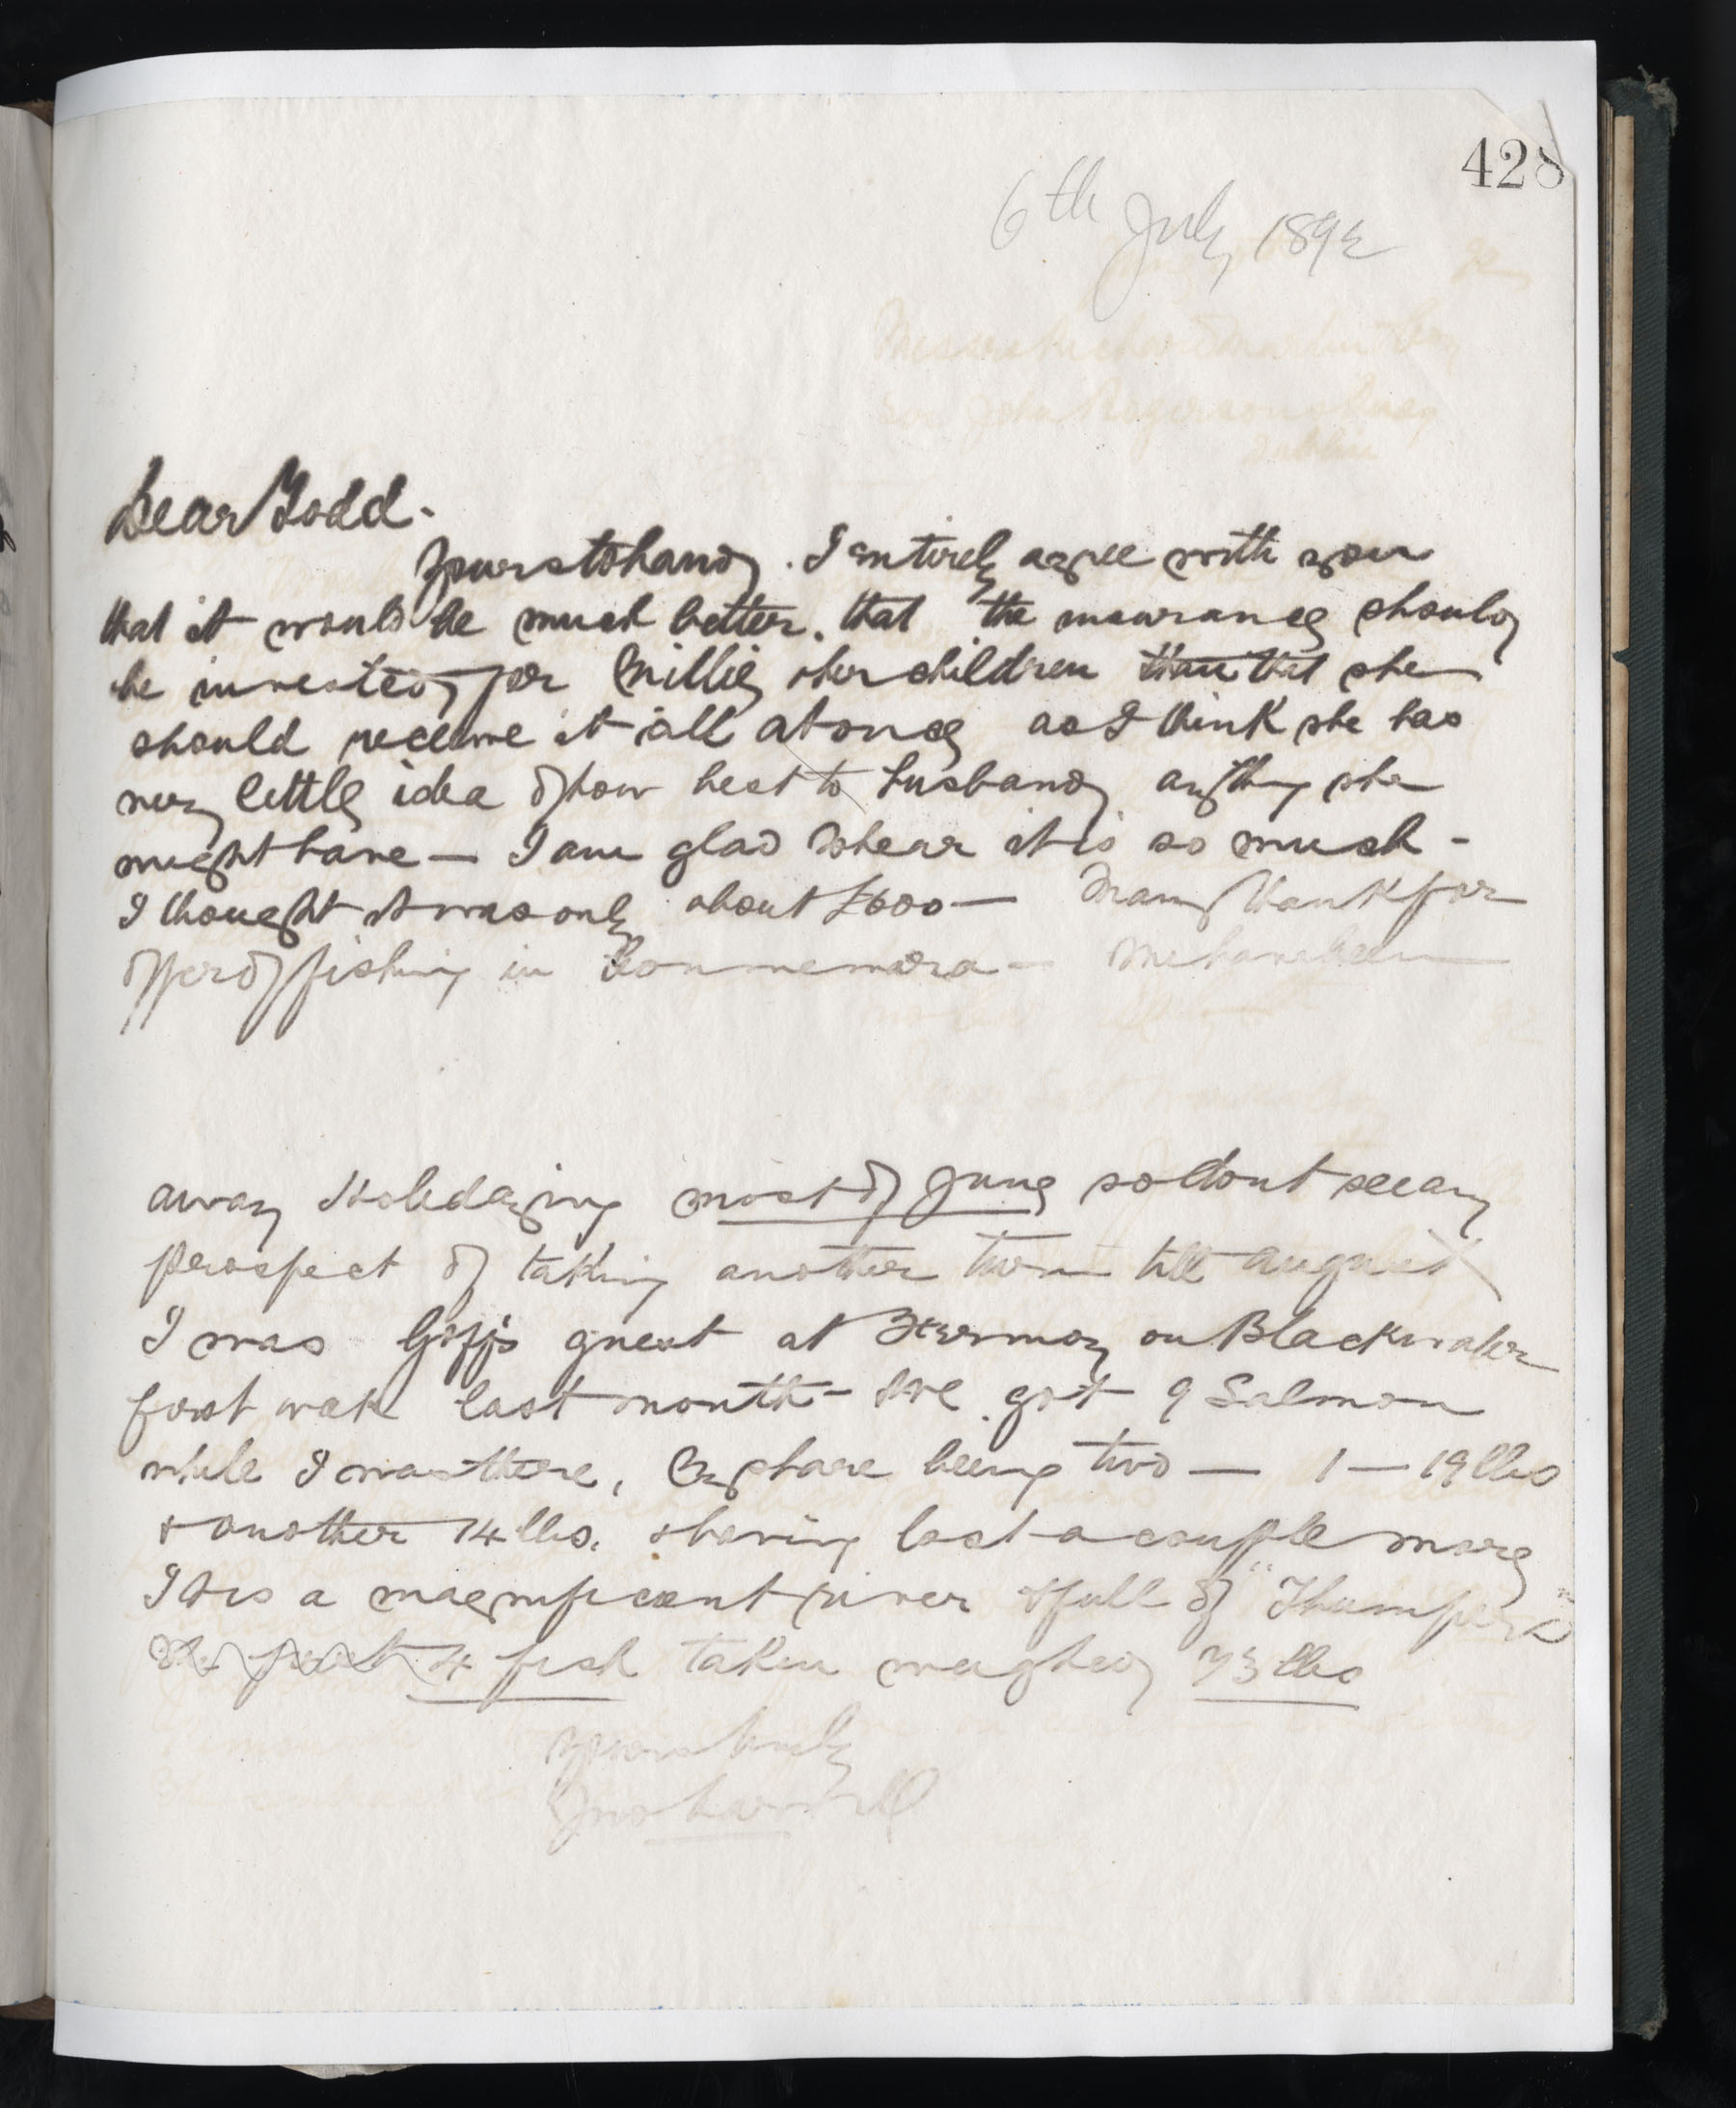 428
6th July 1892
Dear Todd.
Yours to hand. I entirely agree with you
that it would be much better. that the insurance should
be invested for Millie & her children than that she
should receive it all at once as I think she has
very little idea of how best to husband anything she
might have — I am glad to hear it is so much -
I thought it was only about £600 — Many thanks for
offer of fishing in Connemara — 
away Holidaying most of June so dont see any
prospect of taking another turn till August
I was Goff's guest at Fermoy on Blackwater
first week last month - We got 9 Salmon
while I was there, my share being two — 1 — 19 lbs
& another 14 lbs. & having lost a couple more
It is a magnificent river & full of "Thumpers"
4 fish taken weighed 73 lbs
Yours truly